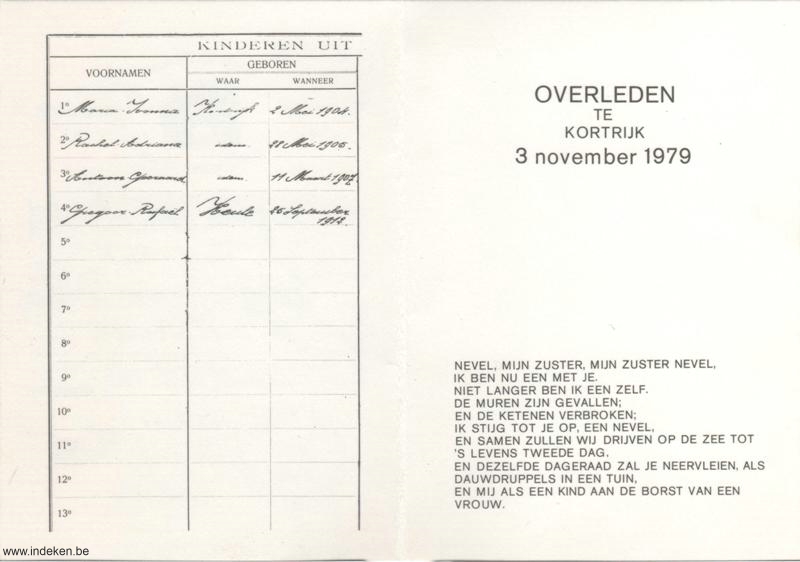 KINDEREN UIT
VOORNAMEN
GEBOREN
WAAR WANNEER
1º Maria-Ivonna Kortrijk 2 Mei 1904.
2º Rachel Adriana idem. 28 Mei 1905.
3º Antoon idem. 11 Maart 1907.
4º Gregoor-Rafaël Heule 26 September
1912.
5º
6º
7º
8º
9º
10º
11º
12º
13º
OVERLEDEN
TE
KORTRIJK
3 november 1979
NEVEL, MIJN ZUSTER, MIJN ZUSTER NEVEL,
IK BEN NU EEN MET JE.
NIET LANGER BEN IK EEN ZELF.
DE MUREN ZIJN GEVALLEN;
EN DE KETENEN VERBROKEN;
IK STIJG TOT JE OP, EEN NEVEL,
EN SAMEN ZULLEN WIJ DRIJVEN OP DE ZEE TOT
'S LEVENS TWEEDE DAG.
EN DEZELFDE DAGERAAD ZAL JE NEERVLEIEN, ALS
DAUWDRUPPELS IN EEN TUIN,
EN MIJ ALS EEN KIND AAN DE BORST VAN EEN
VROUW.
www.indeken.be